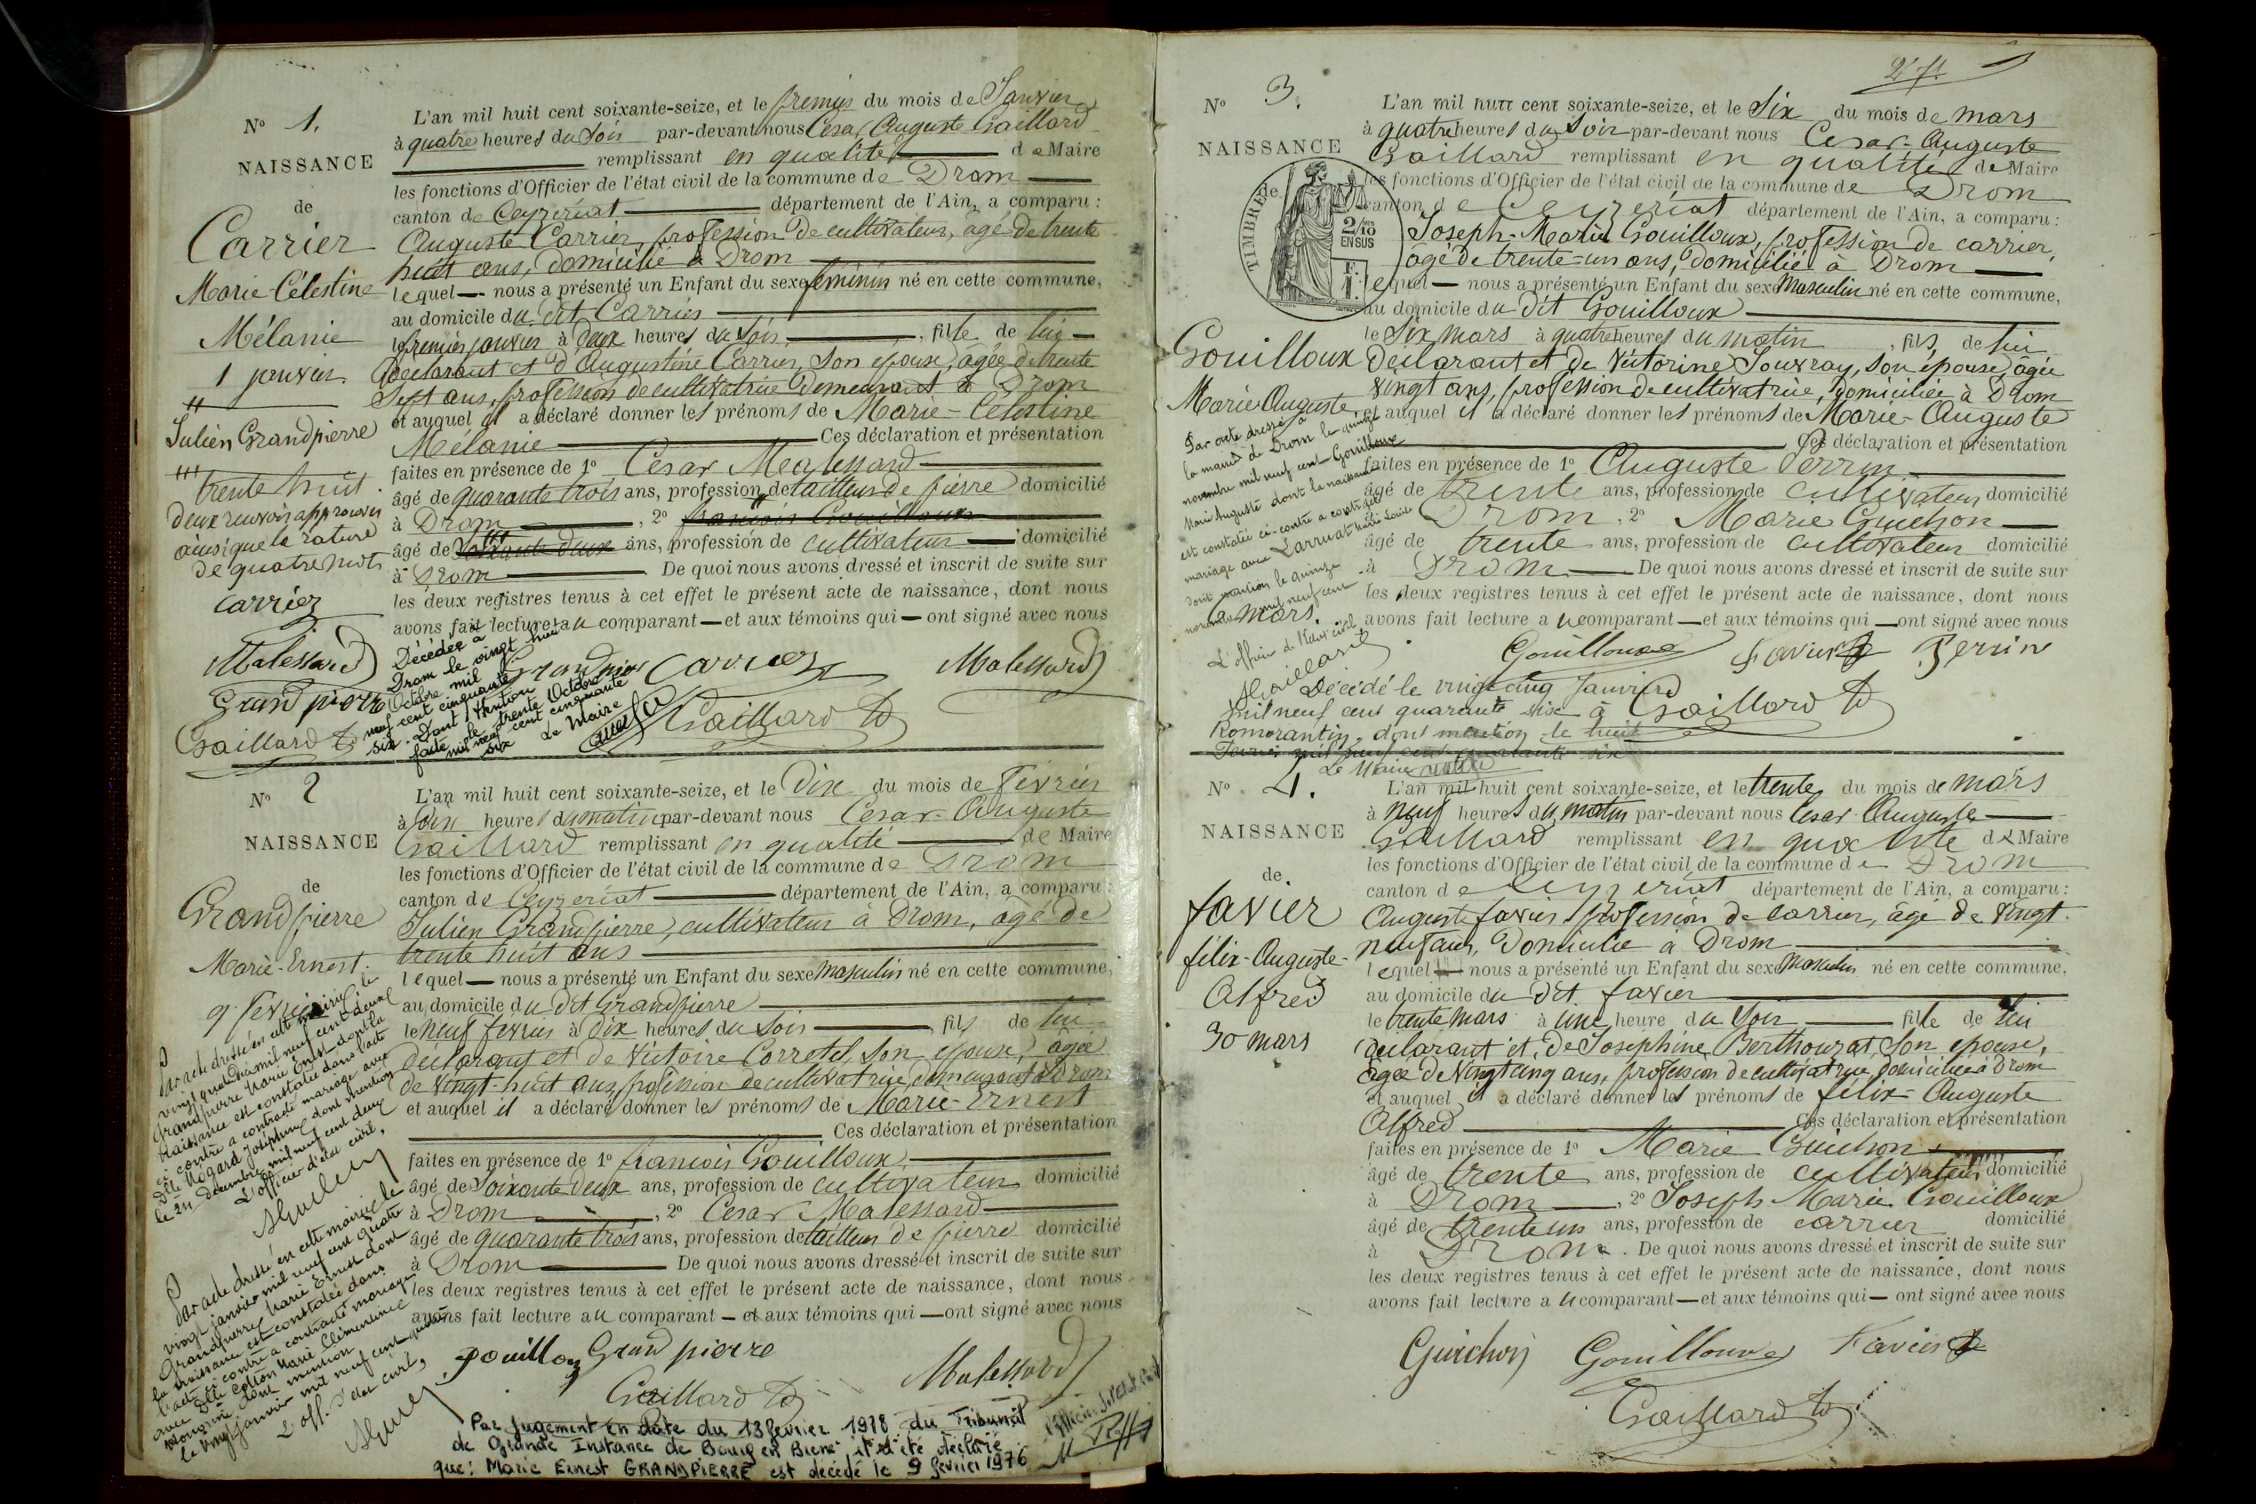 N° 1.
NAISSANCE
de
Carrier
Marie Célestine
Mélanie
1 janvier.
"
Julien Grandpierre
"'
trente huit
deux renvois approuvés
ainsi que la rature
de quatre mots
carrier
Malessard
Grand pierre
Gaillard
L'an mil huit cent soixante-seize, et le premier du mois de Janvier
à quatre heures du soir par-devant nous Cesar Auguste Gaillard
remplissant en qualité de Maire
les fonctions d'Officier de l'état civil de la commune de Drom
canton de Ceyzeriat département de l'Ain, a comparu :
Auguste Carrier, profession de cultivateur, âgé de trente
huit ans, domicilié à Drom
lequel nous a présenté un Enfant du sexe féminin né en cette commune,
au domicile du dit Carrier
le premier janvier à deux heures du soir, fille de lui
déclarant et d'Augustine Carrier, son épouse, âgée de trente
sept ans, profession de cultivatrice demeurant à Drom
et auquel il a déclaré donner les prénoms de Marie-Célestine
Mélanie Ces déclaration et présentation
faites en présence de 1° Cesar Malessard
âgé de quarante trois ans, profession de tailleur de pierre domicilié
à Drom, 2° françois Gouilloux
âgé de soixante deux ans, profession de cultivateur domicilié
à Drom De quoi nous avons dressé et inscrit de suite sur
les deux registres tenus à cet effet le présent acte de naissance, dont nous
avons fait lecture au comparant et aux témoins qui ont signé avec nous
Décédée à
Drom le vingt huit
Octobre mil
neuf cent cinquante
six. Dont Mention
faite le trente Octobre
mil neuf cent cinquante
six Le Maire
Grandpierre Carrier Malessard
Gaillard
N° 2
NAISSANCE
de
Grandpierre
Marie-Ernest.
9 février
Par acte dressé en cette mairie le
vingt quatre mil neuf cent deux
Grandpierre Marie Ernest dont la
naissance est constatée dans l'acte
ci contre a contracté mariage avec
Dlle Joséphine dont mention
le 24 décembre mil neuf cent deux
L'officier d'état civil,
Par acte dressé en cette mairie le
vingt janvier mil neuf cent quatre
Grandpierre Marie Ernest dont
la naissance est constatée dans
l'acte ci contre a contracté mariage
avec Dlle Marie Clémentine
dont mention
le vingt janvier mil neuf cent quatre
L'off. d'état civil,
L'an mil huit cent soixante-seize, et le Dix du mois de février
à dix heures du matin par-devant nous Cesar-Auguste
Gaillard remplissant en qualité de Maire
les fonctions d'Officier de l'état civil de la commune de Drom
canton de Ceyzeriat département de l'Ain, a comparu :
Julien Grandpierre, cultivateur à Drom, âgé de
trente huit ans
lequel nous a présenté un Enfant du sexe masculin né en cette commune,
au domicile du dit Grandpierre
le neuf fevrier à dix heures du soir, fils de lui
déclarant et de Victoire Corretel, son épouse, âgée
de vingt-huit ans, profession de cultivatrice, demeurant à Drom
et auquel il a déclaré donner les prénoms de Marie-Ernest
Ces déclaration et présentation
faites en présence de 1° francois Gouilloux.
âgé de Soixante deux ans, profession de cultivateur domicilié
à Drom, 2° Cesar Malessard
âgé de quarante trois ans, profession de tailleur de pierre domicilié
à Drom De quoi nous avons dressé et inscrit de suite sur
les deux registres tenus à cet effet le présent acte de naissance, dont nous
avons fait lecture au comparant et aux témoins qui ont signé avec nous
Gouilloux Grand pierre Malessard
Gaillard
Par Jugement en date du 13 février 1978 du Tribunal
de Grande Instance de Bourg en Bresse il a été déclaré
que : Marie Ernest GRANDPIERRE est décédé le 9 février 1976
N° 3.
NAISSANCE
de
TIMBRE
2/10 EN SUS
Gouilloux
Marie Auguste.
Par acte dressé à
la mairie de Drom le quinze
novembre mil neuf cent Gouilloux
Marie Auguste dont la naissance
est constatée ci-contre a contracté
mariage avec Larruat Marie Louise
dont mention le quinze
novembre mil neuf cent
6 mars.
L'officier de l'état civil
Gaillard
L'an mil huit cent soixante-seize, et le Six du mois de mars
à quatre heures du soir par-devant nous Cesar-Auguste
Gaillard remplissant en qualité de Maire
les fonctions d'Officier de l'état civil de la commune de Drom
canton de Ceyzeriat département de l'Ain, a comparu :
Joseph-Marie Gouilloux, profession de carrier,
âgé de trente-un ans, domicilié à Drom
lequel nous a présenté un Enfant du sexe Masculin né en cette commune,
au domicile du dit Gouilloux
le Six mars à quatre heures du matin, fils de lui
déclarant et de Victorine Jouvray, son épouse, âgée
vingt ans, profession de cultivatrice, domiciliée à Drom
et auquel il a déclaré donner les prénoms de Marie-Auguste
Ces déclaration et présentation
faites en présence de 1° Auguste Perrin
âgé de trente ans, profession de cultivateur domicilié
à Drom, 2° Marie Guichon
âgé de trente ans, profession de cultivateur domicilié
à Drom De quoi nous avons dressé et inscrit de suite sur
les deux registres tenus à cet effet le présent acte de naissance, dont nous
avons fait lecture au comparant et aux témoins qui ont signé avec nous
Gouilloux Favier Perrin
Gaillard
Décédé le vingt cinq Janvier
mil neuf cent quarante six à
Romorantin, dont mention le huit
Février mil neuf cent quarante six
Le Maire
N° 4.
NAISSANCE
de
favier
félix-Auguste-
Alfred
30 mars
L'an mil huit cent soixante-seize, et le trente du mois de mars
à neuf heures du matin par-devant nous Cesar Auguste
Gaillard remplissant en qualité de Maire
les fonctions d'Officier de l'état civil de la commune de Drom
canton de Ceyzeriat département de l'Ain, a comparu :
Auguste favier profession de carrier, âgé de vingt
neuf ans, domicilié à Drom
lequel nous a présenté un Enfant du sexe Masculin né en cette commune,
au domicile du dit favier
le trente mars à une heure du soir file de lui
déclarant et, de Josephine Berthourat, son épouse,
âgée de vingt cinq ans, profession de cultivatrice, domiciliée à Drom
et auquel il a déclaré donner les prénoms de félix-Auguste
Alfred Ces déclaration et présentation
faites en présence de 1° Marie Guichon
âgé de trente ans, profession de cultivateur domicilié
à Drom, 2° Joseph Marie Gouilloux
âgé de trente un ans, profession de carrier domicilié
à Drom. De quoi nous avons dressé et inscrit de suite sur
les deux registres tenus à cet effet le présent acte de naissance, dont nous
avons fait lecture au comparant et aux témoins qui ont signé avec nous
Guichon Gouilloux Favier
Gaillard